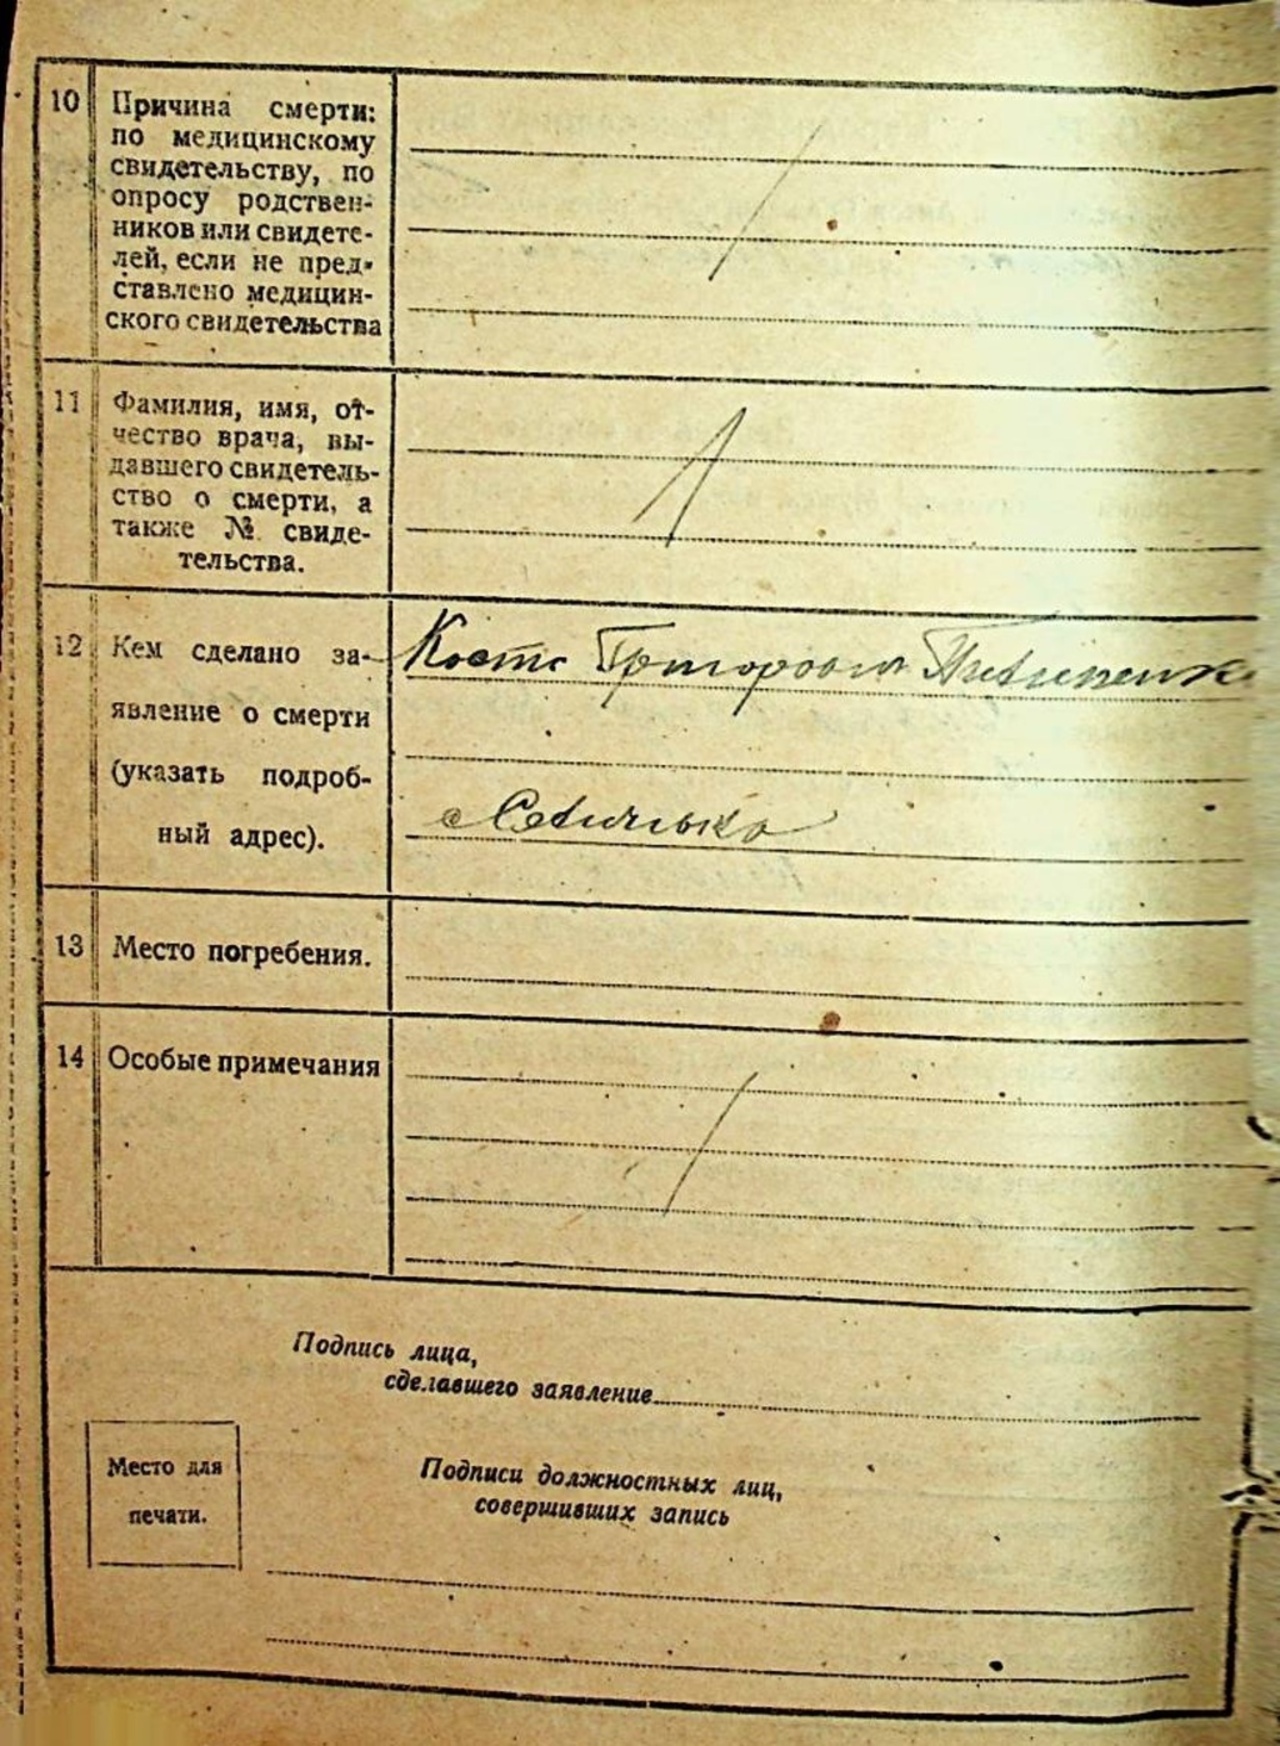 10 Причина смерти:
по медицинскому
свидетельству, по
опросу родствен-
ников или свидете-
лей, если не пред-
ставлено медицин-
ского свидетельства
11 Фамилия, имя, от-
чество врача, вы-
давшего свидетель-
ство о смерти, а
также № свиде-
тельства.
12 Кем сделано за-
явление о смерти
(указать подроб-
ный адрес).
Григорович
13 Место погребения.
14 Особые примечания
Подпись лица,
сделавшего заявление
Место для
печати.
Подписи должностных лиц,
совершивших запись